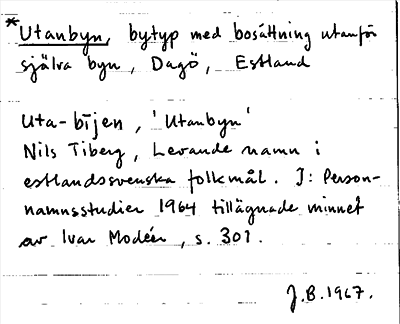 *Utanbyn, bytyp med bosättning utanför
själva byn, Dagö, Estland
Uta-bījen, 'Utanbyn'
Nils Tiberg, Levande namn i
estlandssvenska folkmål. I: Person-
namnsstudier 1964 tillägnade minnet
av Ivar Modéer, s. 301.
J.B.1967.